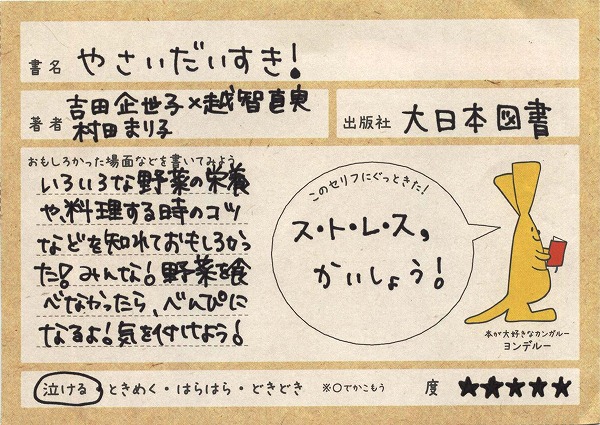 書名 やさいだいすき!
著者 吉田企世子×越智直実
村田まり子
出版社 大日本図書
おもしろかった場面などを書いてみよう
いろいろな野菜の栄養
や、料理する時のコツ
などを知れておもしろかっ
た!みんな!野菜を食
べなかったら、べんぴに
なるよ!気を付けよう!
このセリフにぐっときた!
ス・ト・レ・ス,
かいしょう!
本が大好きなカンガルー
ヨンデルー
泣ける・ときめく・はらはら・どきどき ※○でかこもう 度 ★★★★★